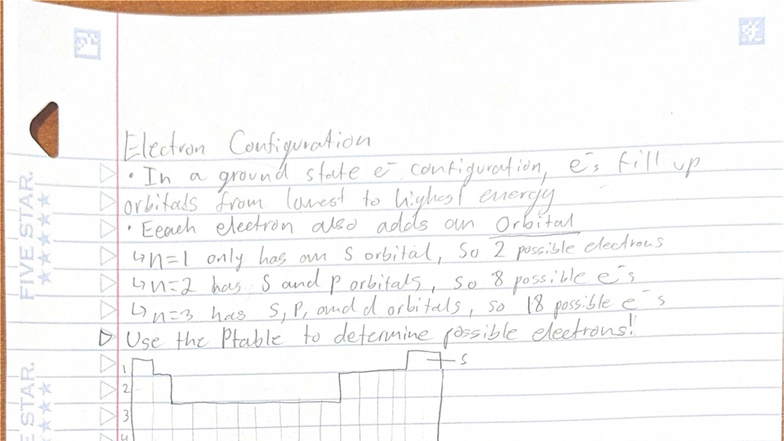 Electron Configuration
• In a ground state e⁻ configuration, e⁻s fill up
orbitals from lowest to highest energy
• Eeach electron also adds an Orbital
↳ n=1 only has an s orbital, so 2 possible electrons
↳ n=2 has s and p orbitals, so 8 possible e⁻s
↳ n=3 has s, p, and d orbitals, so 18 possible e⁻s
Use the Ptable to determine possible electrons!
s
1
2
3
4
FIVE STAR.
FIVE STAR.